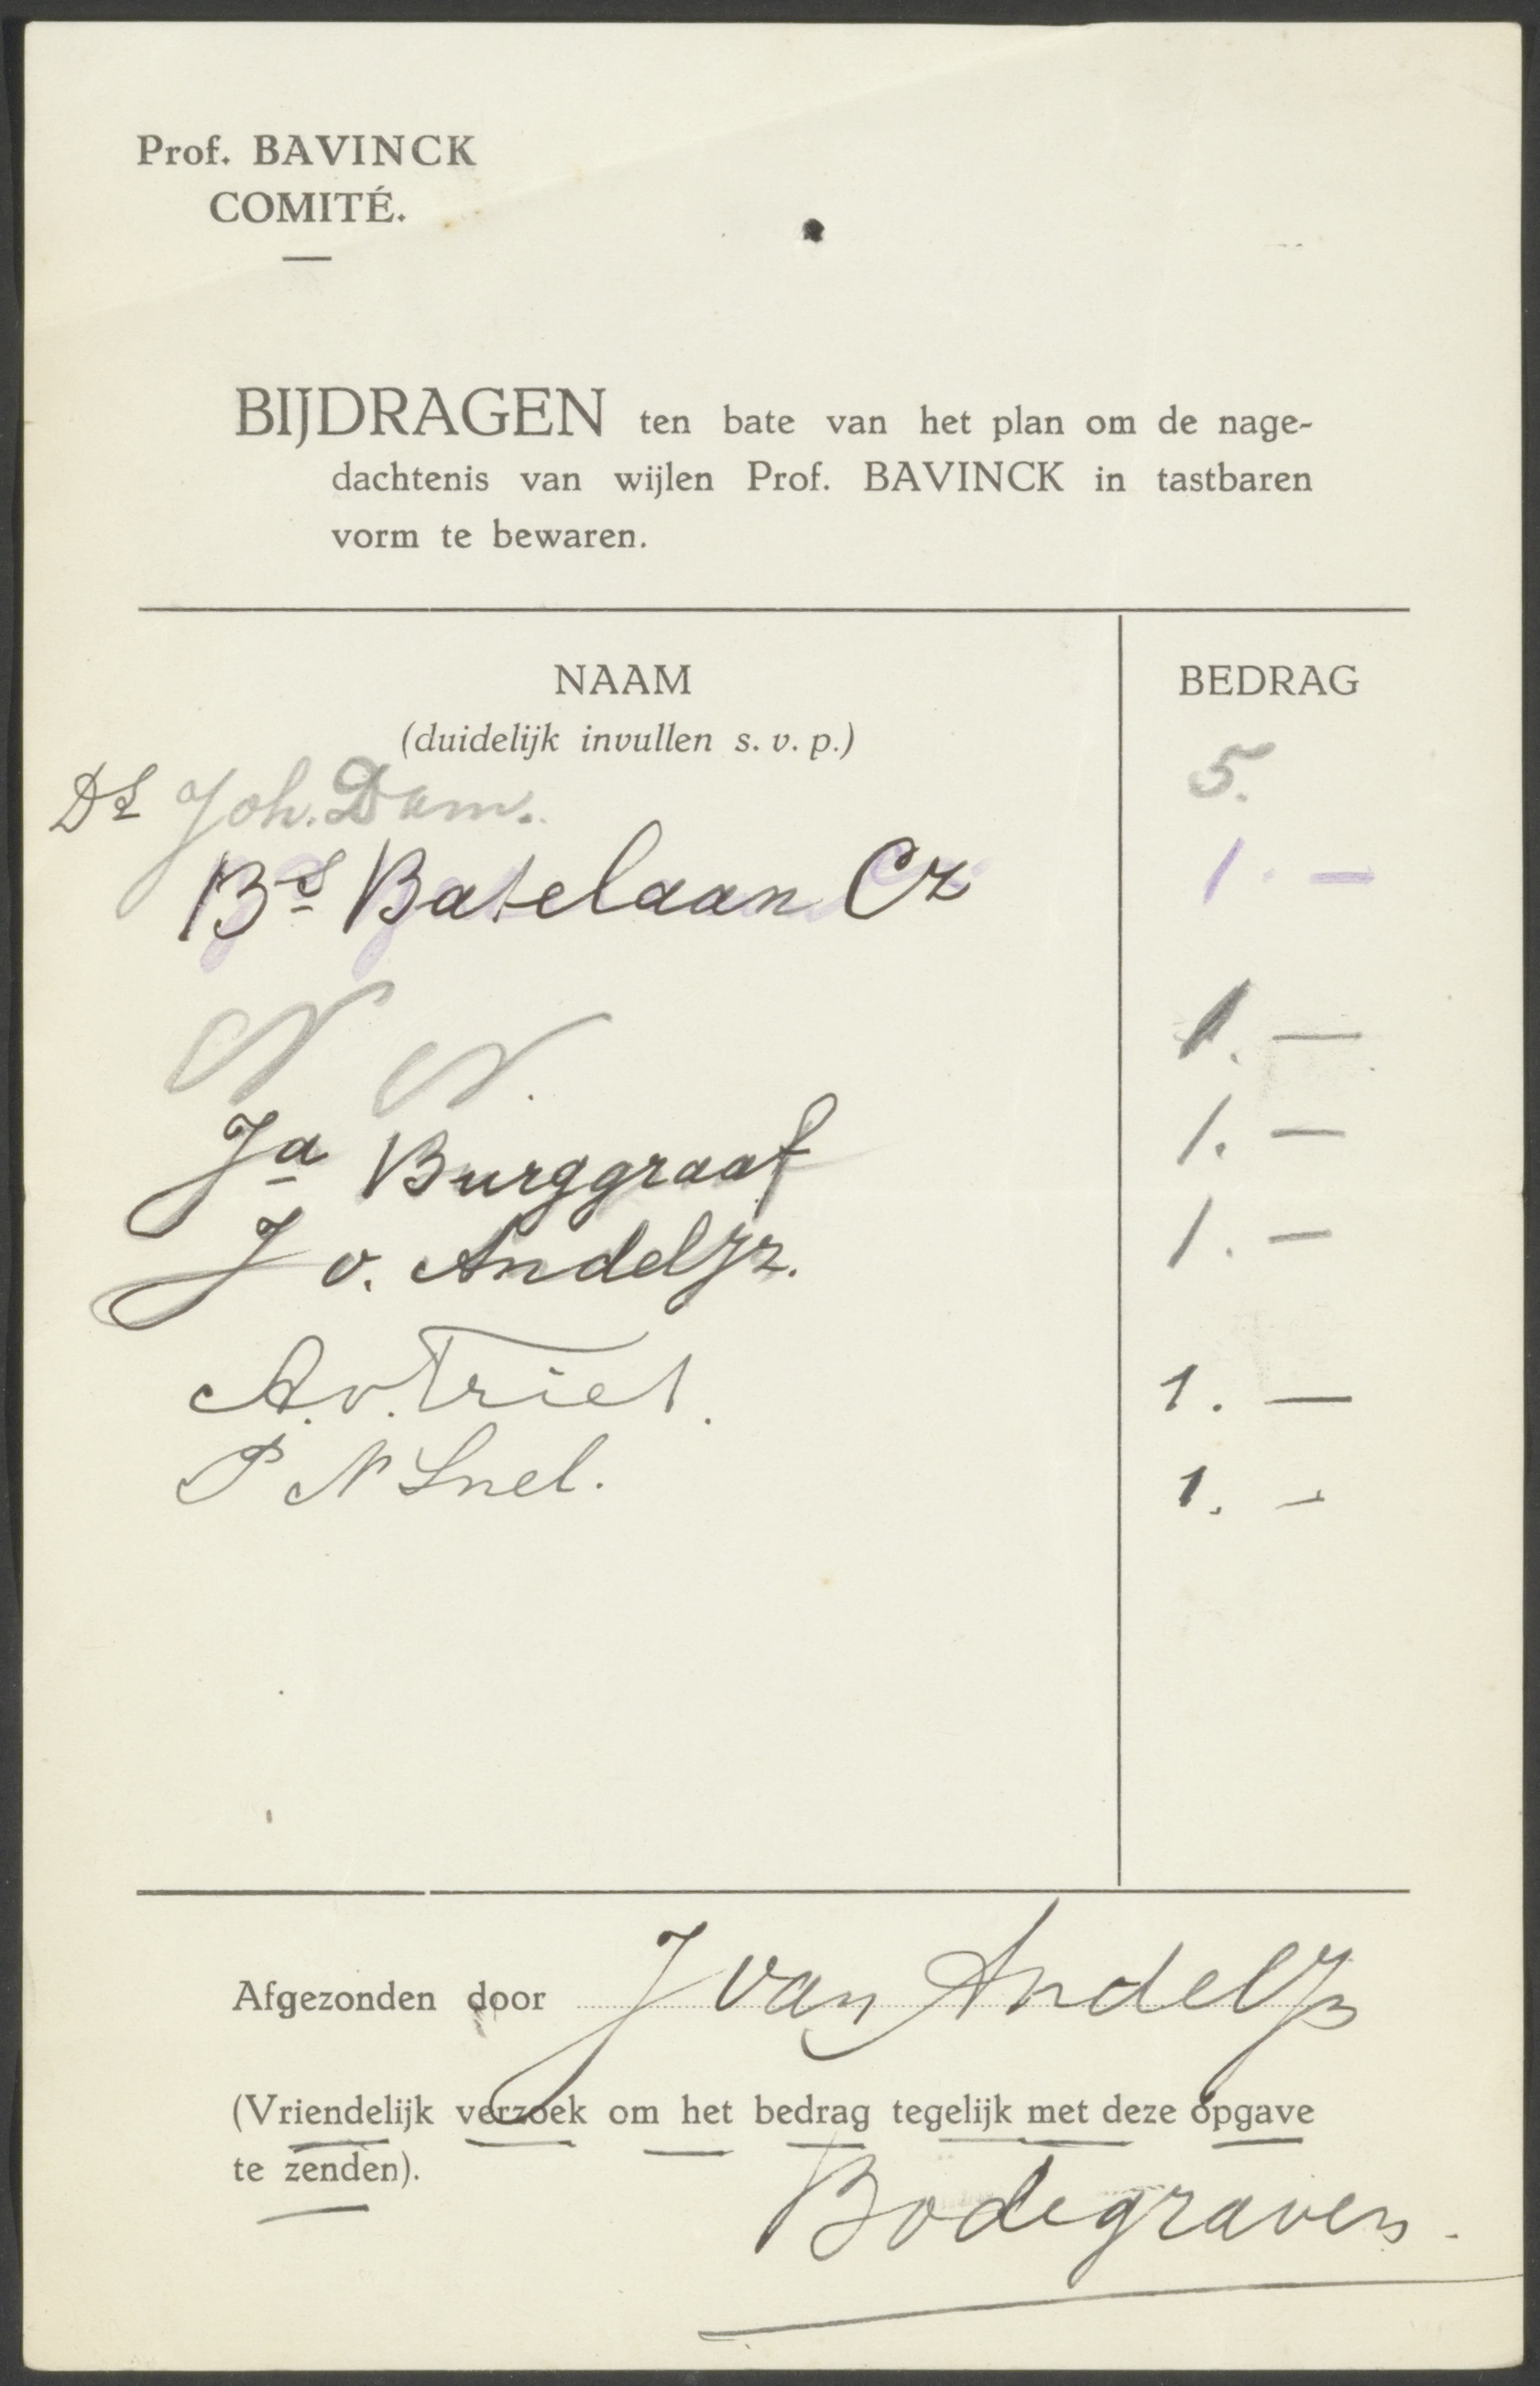 Prof. BAVINCK
COMITÉ.
BIJDRAGEN ten bate van het plan om de nage-
dachtenis van wijlen Prof. BAVINCK in tastbaren
vorm te bewaren.
NAAM BEDRAG
(duidelijk invullen s. v. p.)
Ds Joh. Dam. 5.
Bs Batelaan Cz 1. —
N N. 1. —
Ja Burggraaf 1. —
J v. Andel Jz. 1. —
A. v. Triet. 1. —
P N Snel. 1. —
Afgezonden door J van Andel Jz
(Vriendelijk verzoek om het bedrag tegelijk met deze opgave
te zenden).
Bodegraven.